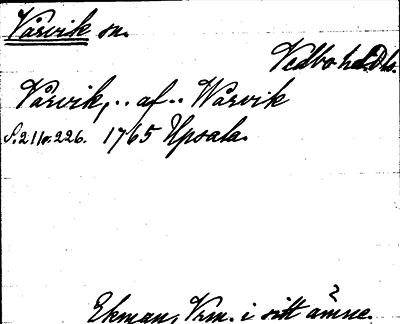 Vårvik sn.
Vedbo hd. Dls.
Vårvik, .. af .. Wårvik
S. 211 o. 226. 1765 Upsala.
?
Ekman, Vrm. i sitt ämne.